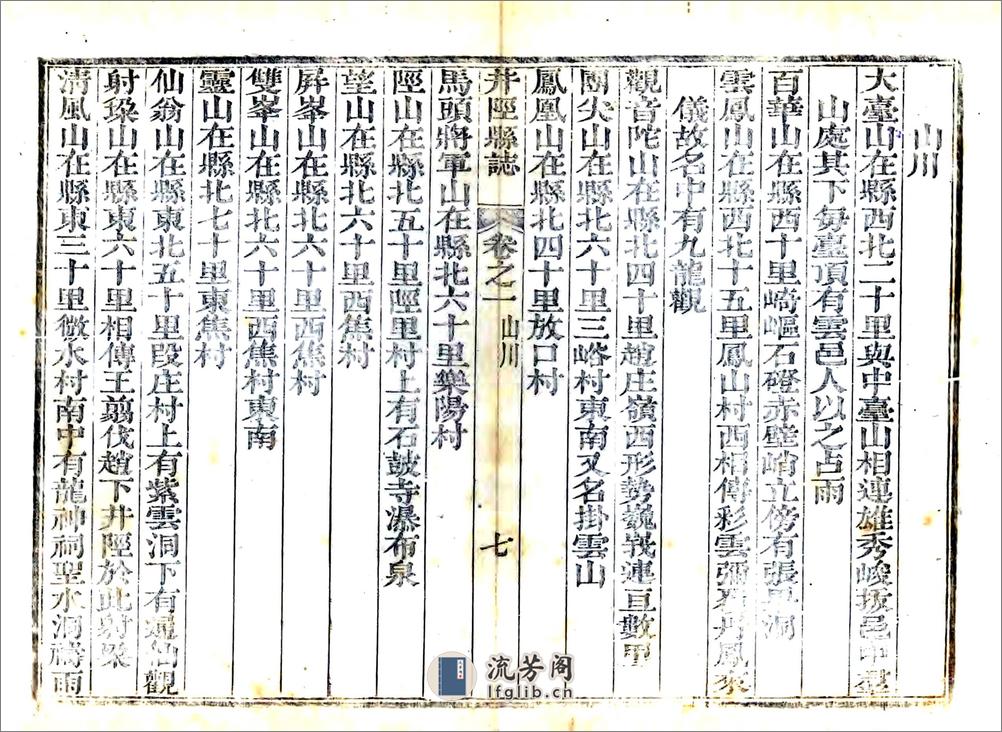 山川
大臺山在縣西北二十里與中臺山相連雄秀峻拔邑中羣
山處其下每臺頂有雲邑人以之占雨
百華山在縣西十里﨑嶇石磴赤壁峭立傍有張果洞
雲鳳山在縣西北十五里鳳山村西相傳彩雲彌丹鳳來
儀故名中有九龍觀
觀音陀山在縣北四十里趙庄嶺西形勢巍峩連亘數里
團尖山在縣北六十里三峪村東南又名掛雲山
鳳凰山在縣北四十里放口村
井陘縣誌 卷之一 山川 七
馬頭將軍山在縣北六十里樂陽村
陘山在縣北五十里陘里村上有石鼓寺瀑布泉
望山在縣北六十里西焦村
屏峯山在縣北六十里西焦村
雙峯山在縣北六十里西焦村東南
靈山在縣北七十里東焦村
仙翁山在縣東北五十里段庄村上有紫雲洞下有通仙觀
射垜山在縣東六十里相傳王翦伐趙下井陘於此射垜
清風山在縣東三十里微水村南中有龍神祠聖水洞禱雨
流芳阁
lfglib.cn